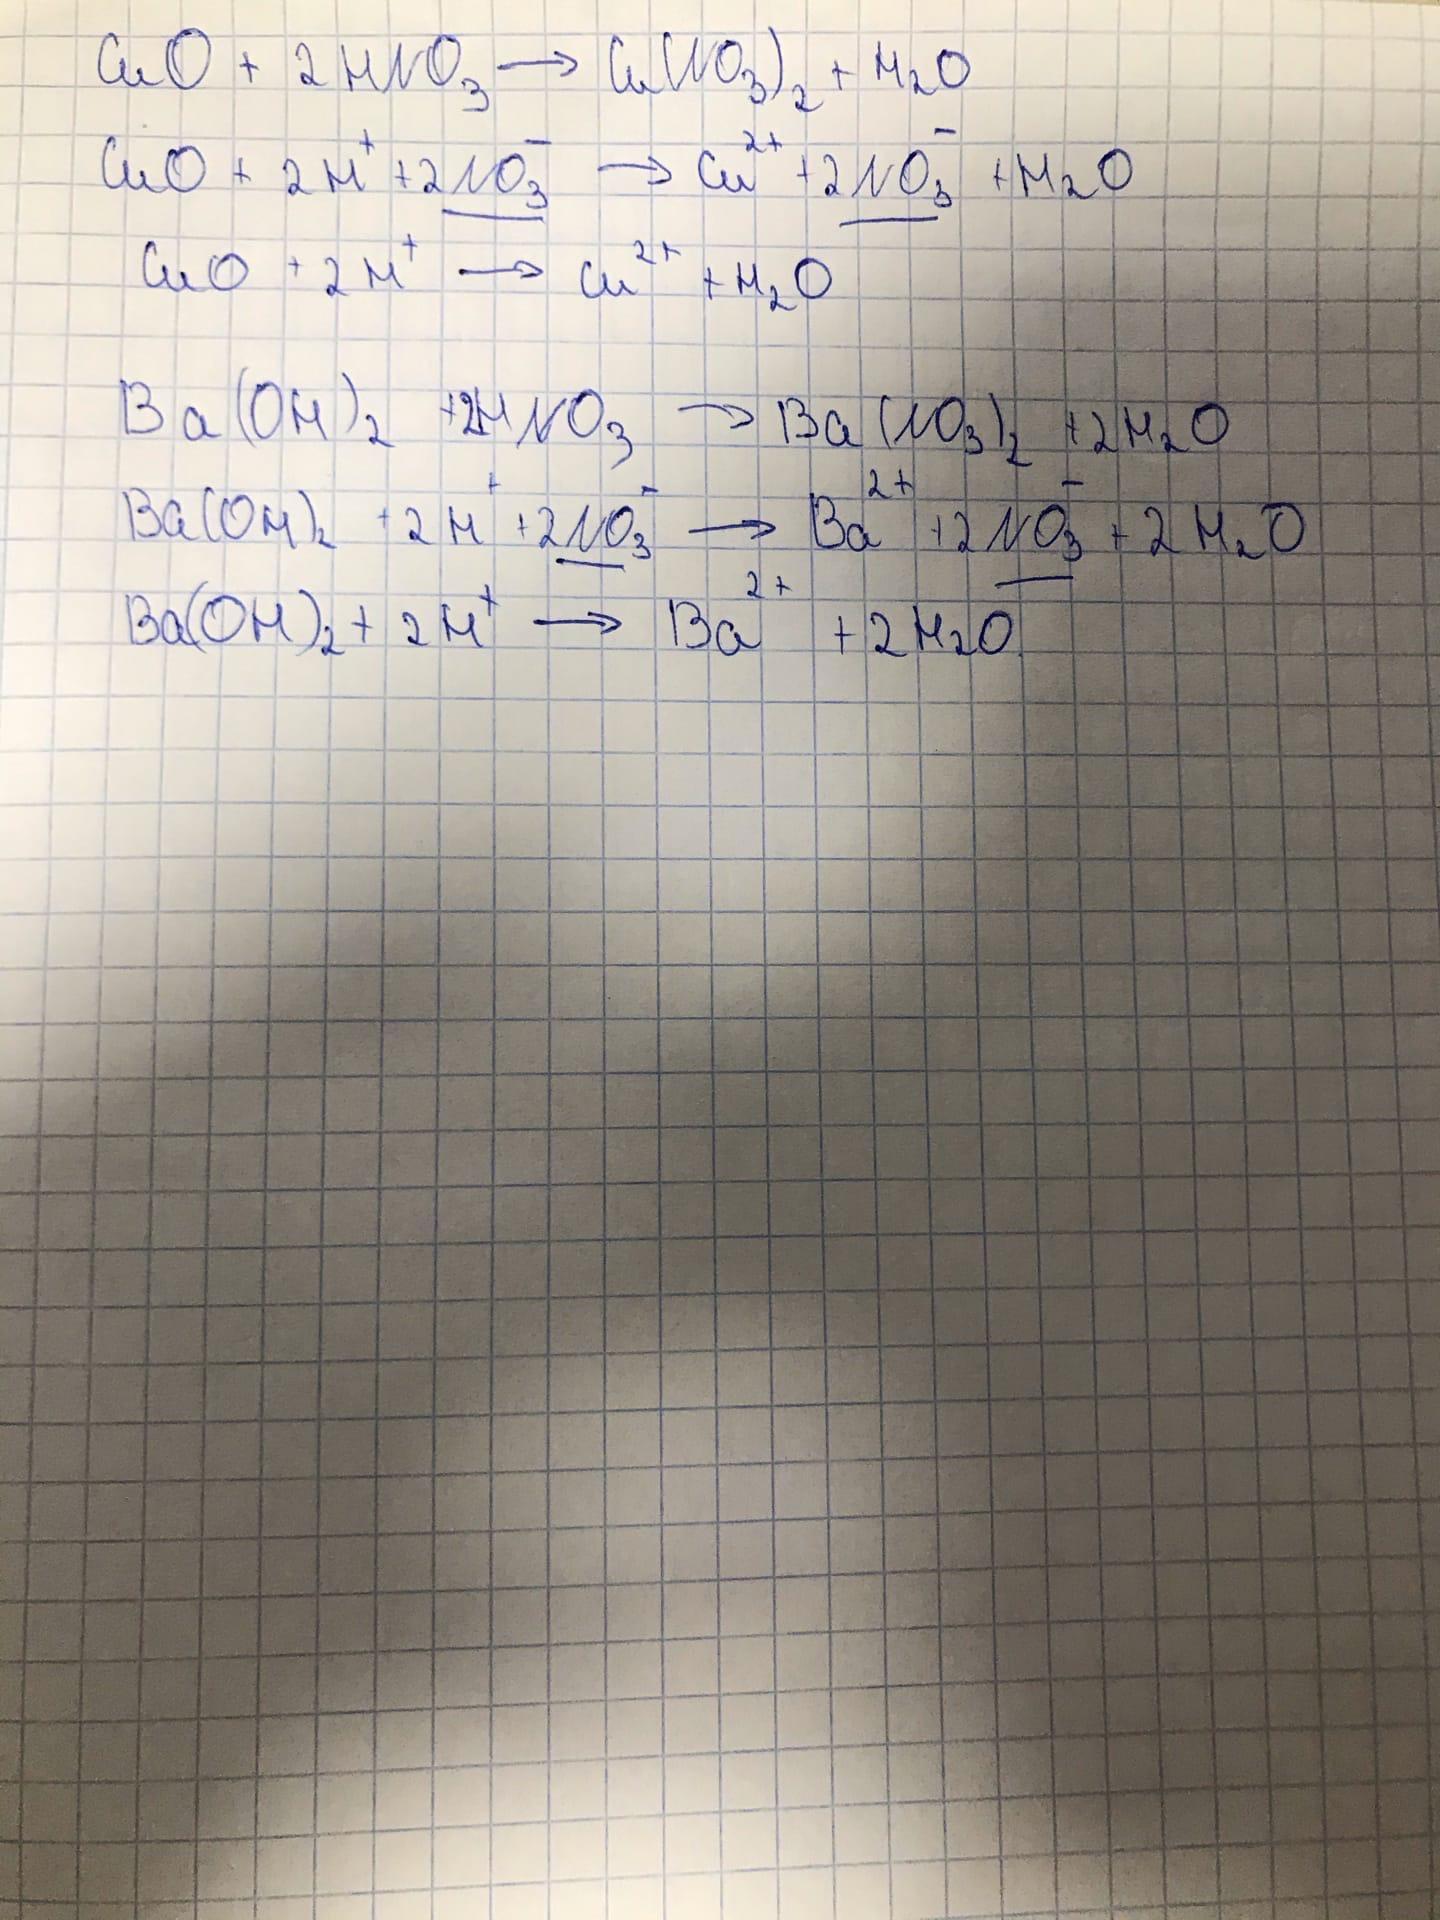 CuO + 2HNO₃ → Cu(NO₃)₂ + H₂O
CuO + 2H⁺ + 2NO₃⁻ → Cu²⁺ + 2NO₃⁻ + H₂O
CuO + 2H⁺ → Cu²⁺ + H₂O
Ba(OH)₂ + 2HNO₃ → Ba(NO₃)₂ + 2H₂O
Ba(OH)₂ + 2H⁺ + 2NO₃⁻ → Ba²⁺ + 2NO₃⁻ + 2H₂O
Ba(OH)₂ + 2H⁺ → Ba²⁺ + 2H₂O